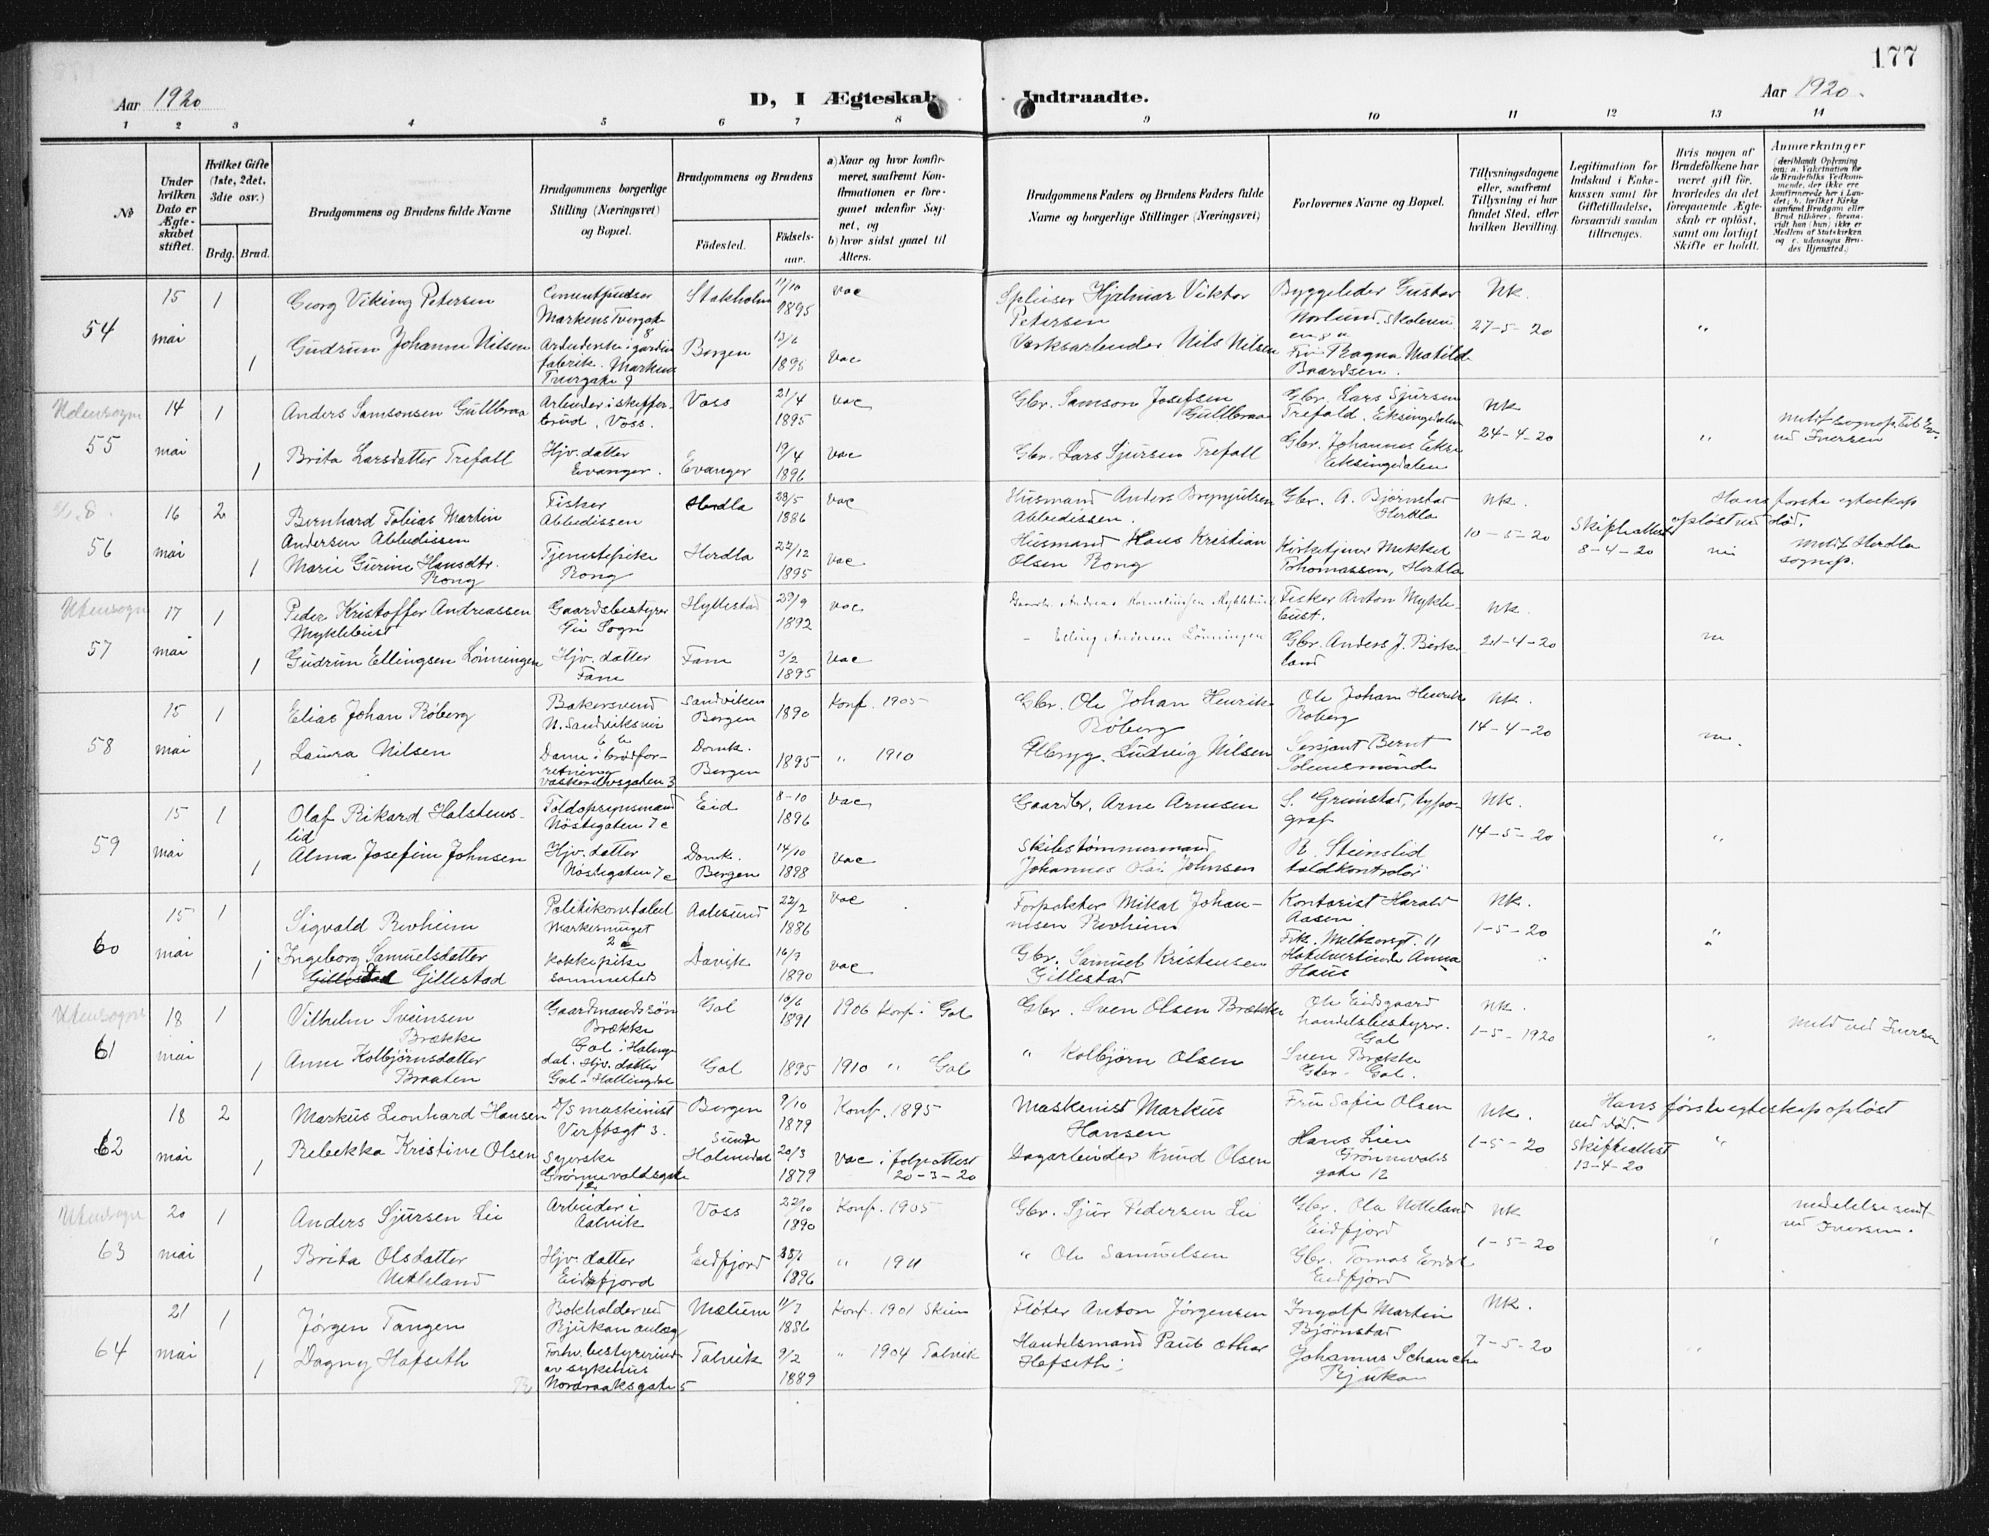 177
Aar 1920
D, I Ægteskab Indtraadte.
Aar 1920.
1 2 3 4 5 6 7 8 9 10 11 12 13 14
No
Under hvilken Dato er Ægteskabet stiftet.
Hvilket Gifte (1ste, 2det. 3dte osv.)
Brdg. Brud.
Brudgommens og Brudens fulde Navne
Brudgommens borgerlige Stilling (Næringsvei) og Bopæl.
Brudgommens og Brudens
Fødested.
Fødselsaar.
a) Naar og hvor konfirmeret, saafremt Konfirmationen er foregaaet udenfor Sognet, og
b) hvor sidst gaaet til Alters.
Brudgommens Faders og Brudens Faders fulde Navne og borgerlige Stillinger (Næringsvei)
Forlovernes Navne og Bopæl.
Tillysningsdagene eller, saafremt Tillysning ei har fundet Sted, efter hvilken Bevilling.
Legitimation for Indskud i Enkekassen samt for Giftetilladelse, forsaavidt saadan tiltrænges.
Hvis nogen af Brudefolkene har været gift før, hvorledes da det foregaaende Ægteskab er opløst, samt om lovligt Skifte er holdt.
Anmerkninger
54
15 mai
1
Georg Viking Petersen
Markens Tvergate 8
Stokholm
11/10 1895
vac
Hjalmar Viktor Petersen
Byggeleder Gustav Norlund
Nk.
27-5-20
"
1
Gudrun Johanne Nilsen
Arbeiderske i gardinfabrik. Markens Tvergate 9
Bergen
13/6 1896
vac
Verksarbeider Nils Nilsen
Fru Ragna Matilde Baardsen.
Utensogns
55
14 mai
1
Anders Samsonsen Gullbraa
Voss.
Voss
21/4 1895
vac
Gbr. Samson Josefsen Gullbraa
Gbr. Lars Sjursen Trefald, Eksingedalen
Nk
24-4-20
"
ved Iversen
1
Brita Larsdatter Trefall
Hjv. datter Evanger.
Evanger
19/4 1896
vac
Gbr. Lars Sjursen Trefall
Gbr. Johannes Ekse Eksingedalen
56
16 mai
2
Bernhard Tobias Martin Andersen Abbedissen
Fisker Abbedissen
Herdla
28/5 1886
vac
Husmand Anders Brynjulsen Abbedissen.
Gbr. A. Bjørnstad Herdla
Nk.
10-5-20
Skifteattest 8-4-20
Hans første egteskap opløst ved død.
nei
Herdla sognep.
1
Marie Gurine Hansdtr. Rong
Tjenestepike Rong
Herdla
22/12 1895
vac
Husmand Hans Kristian Olsen Rong
Kirketjener Mikkel Tohomassen, Herdla
Utensogns
57
17 mai
1
Peder Kristoffer Andreassen Myklebust
Gaardsbestyrer
Hyllestad
29/9 1892
vac
Fisker Anton Myklebust.
Nk.
21-4-20
1
Gudrun Ellingsen Lønningen
Hjv. datter Fane
Fane
3/2 1895
vac
Elling Andersen Lønningen
Gbr. Anders J. Birkeland
58
15 mai
1
Elias Johan Røberg
Bakersvend N. Sandviksvei
Sandviken Bergen
1890
Konf. 1905
Gbr. Ole Johan Henrik Røberg
Ole Johan Henrik Røberg
Nk.
14-4-20
1
Laura Nilsen
Dame i brødforretning
Domk. Bergen
1895
" 1910
Ølbryg. Ludvig Nilsen
Sersjant Bernt
59
15 mai
1
Olaf Rikard Halstenslid
Toldopsynsmand Nöstegaten 7 c
Eid
8-10 1896
vac
Gaardbr. Arne Arnesen
S. Grimstad, typograf
Nk.
14-5-20
"
1
Alma Josefine Johnsen
Hjv. datter Nöstegaten 7 c
Domk. Bergen
14/10 1898
vac
Skibstømmermand Johannes Johnsen
R. Stenslid toldkontrolør
60
15 mai
1
Sigvald Revheim
Politikonstabel
Aalesund
22/2 1886
vac
Forpakter Mikal Johannesen Revheim
Kontorist Harald Aasen
Nk.
1-5-20
"
1
Ingeborg Samuelsdatter Gillestad
Kokkepike sammesteds
Davik
16/7 1890
vac
Gbr. Samuel Kristensen Gillestad
Hotelvertinde Anna Haus
Utensogns
61
18 mai
1
Vilhelm Sveinsen Brække
Gaardmandssøn Brække Gol i Halingdal.
Gol
10/6 1891
1906 Konf. i Gol
Gbr. Sven Olsen Brække
Ole Eidsgaard handelsbestyrer. Gol
Nk.
1-5-1920
"
meld ved Iversen
1
Anne Kolbjørnsdatter Braaten
Hjv. datter Gol i Hallingdal
Gol
1895
1910 " Gol
" Kolbjørn Olsen
Sven Brække Gbr. Gol.
62
18 mai
2
Markus Leonhard Hansen
D/S maskinist Verftsgt 3.
Bergen
9/10 1879
Konf. 1895
Maskenist Markus Hansen
Fru Sofie Olsen
Nk.
1-5-20
Hans første egteskap opløst ved død.
Skifteattest 13-4-20
"
1
Rebekka Kristine Olsen
Syerske
20/3 1879
vac i følge attest 20-3-20
Dagarbeider Knud Olsen
Hans Lien Grønnevolds gate 12
Utensogns
63
20 mai
1
Anders Sjursen Lie
Arbeider i Aalvik
Voss
22/10 1890
Konf. 1905
Gbr. Sjur Pedersen Lie
Gbr. Ola Netteland Eidfjord
Nk
1-5-20
"
meddelelse sendt ved Iversen.
1
Brita Olsdatter Netteland
Hjv. datter Eidfjord
Eidfjord
1896
" 1911
" Ole Samuelsen
Gbr. Tomas Eidfjord
64
21 mai
1
Jørgen Tangen
Bokholder ved Rjukan anlæg
Mælum
11/7 1886
Konf. 1901 Skien
Fløter Anton Jørgensen
Ingolf Martin Bjørnstad
Nk.
7-5-20
1
Dagny Hafseth
Forhv. bestyrerinde av sykehus Nordraaksgate 5
Talvik
9/2 1889
" 1904 Talvik
Handelsmand Paul Othar Hafseth
Johannes Schanche Rjukan